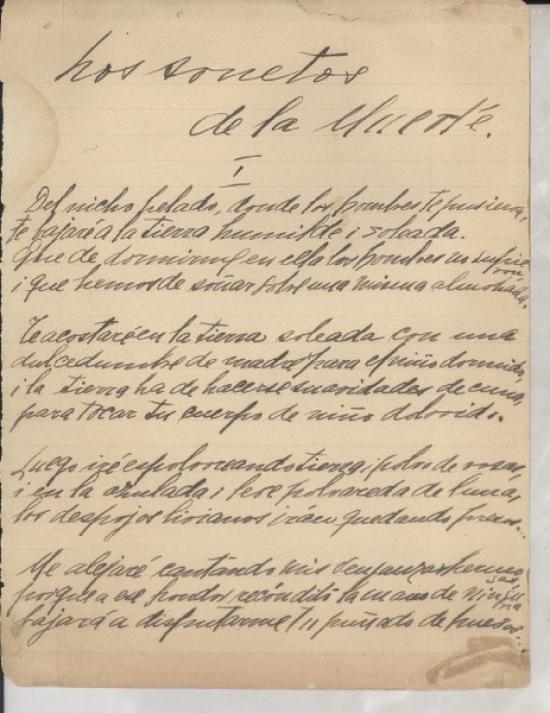 Los sonetos
de la Muerte.
I
Del nicho helado, donde los hombres te pusieron,
te bajaré a la tierra humilde i soleada.
Que he de dormirme en ella los hombres no supieron
i que hemos de soñar sobre una misma almohada.
Te acostaré en la tierra soleada con una
dulcedumbre de madre para el niño dormido,
i la tierra ha de hacerse suavidades de cuna,
para tocar tu cuerpo de niño dolorido.
Luego iré espolvoreando tierra i polvo de rosas,
i en la azulada i leve polvareda de luna,
los despojos livianos irán quedando presos...
Me alejaré cantando mis venganzas hermosas,
porque a ese hondor recóndito la mano de ninguna
bajará a disputarme tu puñado de huesos...